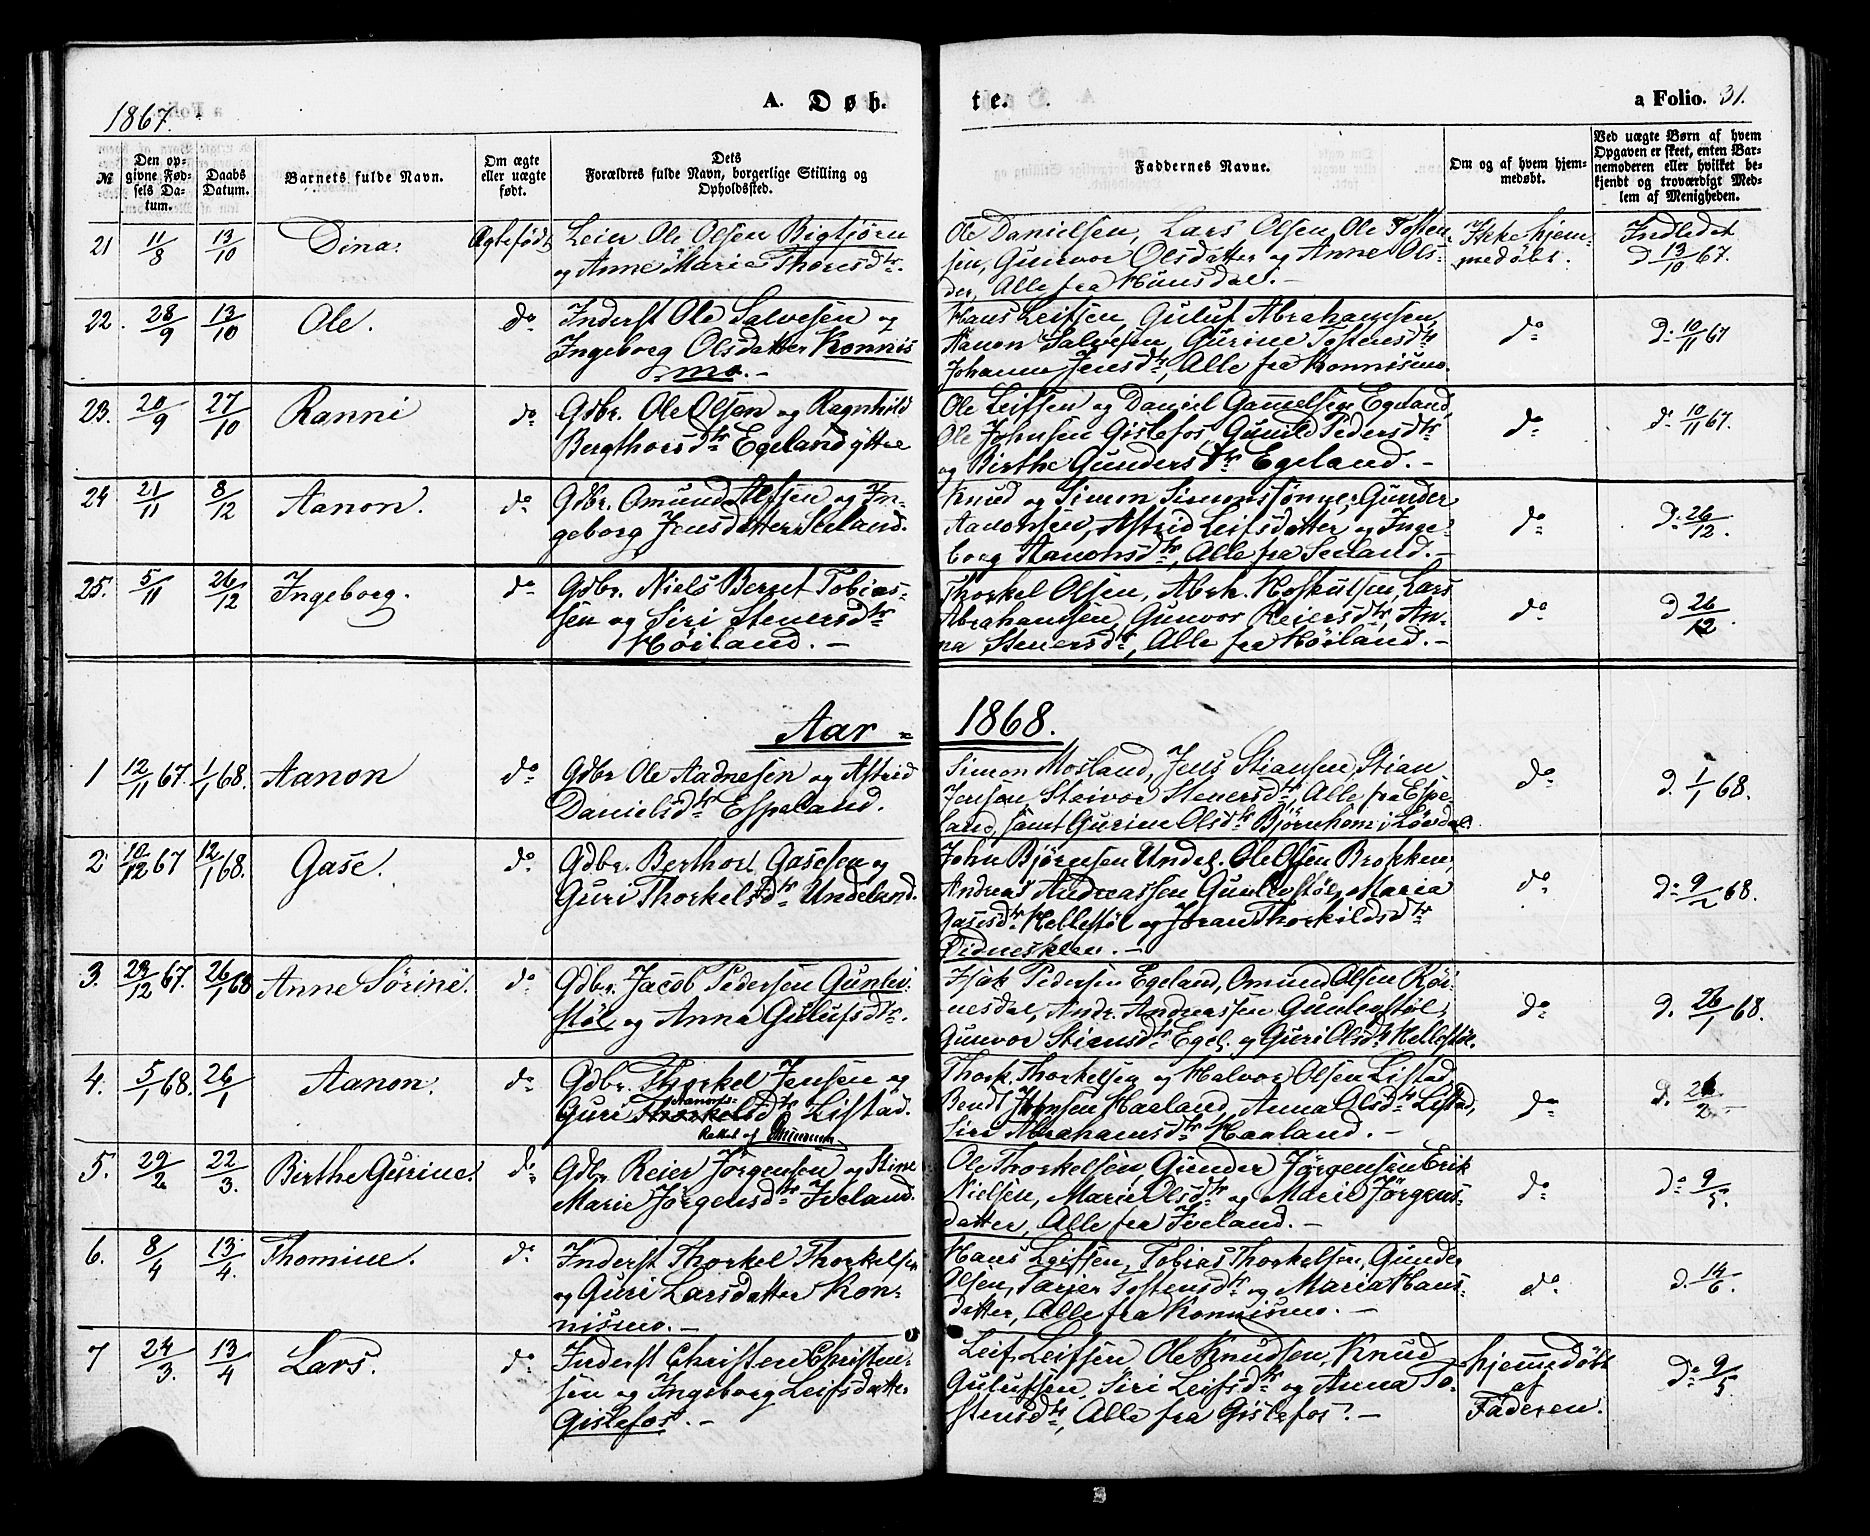 1867.
A. Døb-
te.
a Folio. 31.
№
Den op-
givne Fød-
sels Da-
tum.
Daabs
Datum.
Barnets fulde Navn.
Om ægte
eller uægte
født.
Dets
Forældres fulde Navn, borgerlige Stilling og
Opholdssted.
Faddernes Navne.
Om og af hvem hjem-
medøbt.
Ved uægte Børn af hvem
Opgaven er skeet, enten Bar-
nemoderen eller hvilket be-
kjendt og troværdigt Med-
lem af Menigheden.
21 11/8 13/10 Dina. Ægtefødt
Leier Ole Olsen Bigtjørn
og Anne Marie Thorisdtr.
Ole Danielsen, Lars Olsen, Ole Tosten-
sen, Gunvor Olsdatter og Anne Ols-
der, Alle fra Hunsdal.-
Ikke hjem-
medøbt.
Indledet
d. 13/10 67.
22. 28/9 13/10 Ole. do
Inderst Ole Salvesen og
Ingeborg Olsdatter Konnis
mo.-
Hans Leifsen, Guluf Abrahamsen,
Aanon Salvesen, Gurine Tostensdtr
Johanne Jensdtr, Alle fra Konnismo.
do
d. 10/11 67
23. 20/9 27/10 Ranni do
Gdbr. Ole Olsen og Ragnhild
Bergthorsdtr Egeland yttre
Ole Leifsen og Daniel Gamelsen Egeland,
Ole Johnsen Gislefos, Gunild Pedersdtr
og Birthe Gundersdtr Egeland.-
do
d. 10/11 67.
24 21/11 8/12 Aanon. do
Gdbr. Omund Alfsen og In-
geborg Jensdatter Seeland.
Knud og Simon Simonssønner, Gunder
Aanonsen, Astrid Leifsdatter og Inge-
borg Aanonsdtr, Alle fra Seeland.-
do
d. 26/12.
25. 5/11 26/12 Ingeborg. do
Gdbr. Niels Berent Tobias-
sen og Siri Stenersdtr
Høiland.-
Thorkel Olsen, Abrh. Hoskulsen, Lars
Abrahamsen, Gunvor Reiersdtr, An-
na Stenersdtr, Alle fra Høiland.-
do
d 26/12.
Aar - 1868.
1 12/11 67. 1/1 68. Aanon do
Gdbr Ole Aadnesen og Astrid
Danielsdtr Espeland.
Simon Mosland, Jens Stiansen, Stian
Jensen, Steivor Stenersdtr, Alle fra Espe-
land, samt Gurine Olsdtr Bjørnhom i Løvdal.
do
d. 1/1 68.
2 10/12 67 12/1 68. Gase. do
Gdbr. Berthor Gasesen og
Guri Thorkelsdtr Undeland.
John Bjørnsen Undel. Ole Olsen Brokken,
Andreas Andreassen Gunlegstøl, Maria
Gasesdtr Hellestøl og Joran Thorkildsdtr
Øidnesklen.-
do
d. 9/2 68.
3. 29/12 67. 26/1 68 Anne Sørine. do
Gdbr. Jacob Pedersen Gunlei-
støl, og Anna Gulufsdtr.
Isak Pedersen Egeland, Omund Olsen Røi-
nesdal, Andr. Andreassen Gunlegstøl,
Gunvor Stiensdtr Egel. og Guri Olsdtr Hellestøl.
do
d. 26/1 68.
4. 5/1 68. 26/1 Aanon. do
Gdbr. Thorkel Jensen og
Aanons-
Guri Thorkelsdtr Listad.
Rettet af
Thork. Thorkelsen og Halvor Olsen Listad,
Bendt Jensen Haaland, Anna Olsdtr Listad,
Siri Abrahamsdtr Haaland.-
do
d. 26/2
5. 29/2 22/3. Birthe Gurine. do
Gdbr Reier Jørgensen og Stine
Marie Jørgensdtr Iveland.
Ole Thorkelsen, Gunder Jørgensen Erik
Nielsen, Marie Olsdtr og Marie Jørgens-
datter, Alle fra Iveland.-
do
d. 9/5.
6. 8/4 13/4. Thomine. do
Inderst Thorkel Thorkelsen
og Guri Larsdatter Kon-
nismo.-
Hans Leifsen, Tobias Thorkelsen, Gunder
Olsen, Tarjer Tostensdtr og Maria Hans-
datter, Alle fra Konnismo.-
do
d. 14/6.
7 24/3. 13/4 Lars. do
Inderst Christen Christen-
sen og Ingeborg Leifsdatter
Gislefos.-
Leif Leifsen, Ole Knudsen, Knud
Gulufsen, Siri Leifsdtr og Anna To-
stensdtr, Alle fra Gislefos.-
hjemmedøbt
af
Faderen.
d. 9/5